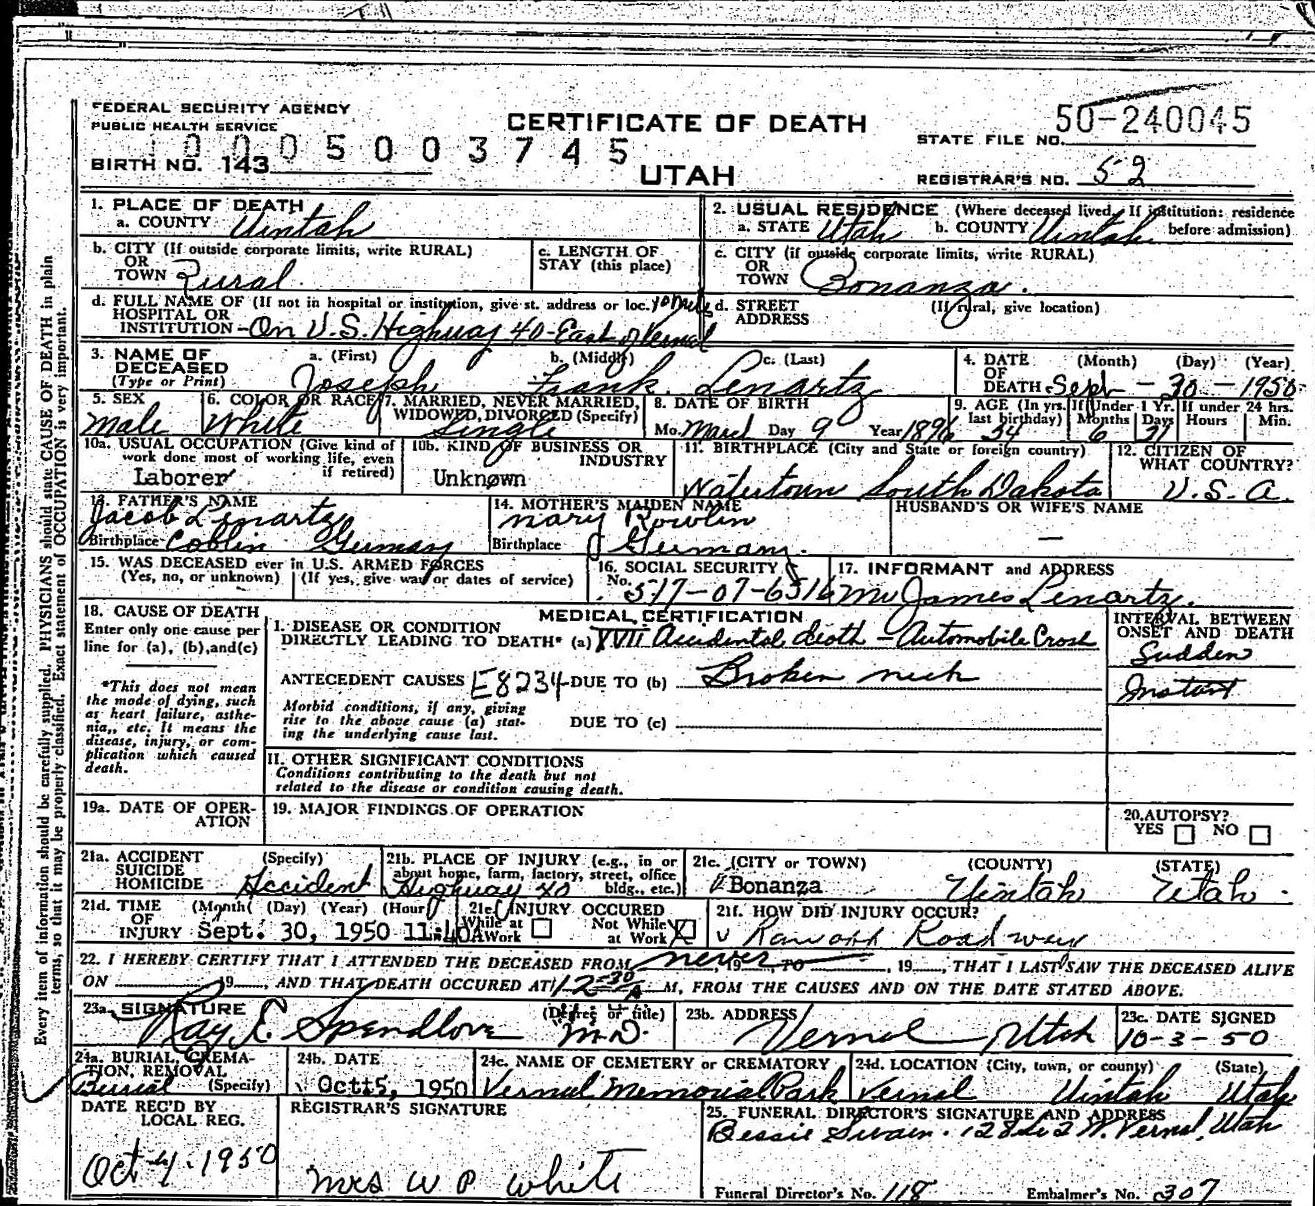 FEDERAL SECURITY AGENCY
PUBLIC HEALTH SERVICE
CERTIFICATE OF DEATH
STATE FILE NO. 50-240045
BIRTH NO. 143 10005003745
UTAH
REGISTRAR'S NO. 52
1. PLACE OF DEATH
a. COUNTY Uintah
2. USUAL RESIDENCE (Where deceased lived. If institution: residence before admission)
a. STATE Utah b. COUNTY Uintah
b. CITY (If outside corporate limits, write RURAL)
OR TOWN Rural
c. LENGTH OF STAY (this place)
c. CITY (if outside corporate limits, write RURAL)
OR TOWN Bonanza.
d. FULL NAME OF (If not in hospital or institution, give st. address or loc.)
HOSPITAL OR INSTITUTION - On U.S. Highway 40 - East of Vernal
d. STREET ADDRESS (If rural, give location)
3. NAME OF DECEASED (Type or Print)
a. (First) b. (Middle) c. (Last)
Joseph Frank Lenartz
4. DATE OF DEATH (Month) (Day) (Year)
Sept - 30 - 1950
5. SEX
Male
6. COLOR OR RACE
White
7. MARRIED, NEVER MARRIED, WIDOWED, DIVORCED (Specify)
Single
8. DATE OF BIRTH
Mo. March Day 9 Year 1896
9. AGE (In yrs. last birthday) If Under 1 Yr. If under 24 hrs.
Months Days Hours Min.
54 6 21
10a. USUAL OCCUPATION (Give kind of work done most of working life, even if retired)
Laborer
10b. KIND OF BUSINESS OR INDUSTRY
Unknown
11. BIRTHPLACE (City and State or foreign country)
Watertown South Dakota
12. CITIZEN OF WHAT COUNTRY?
U.S.A.
13. FATHER'S NAME
Jacob Lenartz
Birthplace Coblin Germany
14. MOTHER'S MAIDEN NAME
Mary
Birthplace Germany.
HUSBAND'S OR WIFE'S NAME
—
15. WAS DECEASED ever in U.S. ARMED FORCES
(Yes, no, or unknown) (If yes, give war or dates of service)
16. SOCIAL SECURITY
No. 517-07-6516
17. INFORMANT and ADDRESS
Mr James Lenartz.
18. CAUSE OF DEATH
Enter only one cause per line for (a), (b), and (c)
*This does not mean the mode of dying, such as heart failure, asthenia, etc. It means the disease, injury, or complication which caused death.
MEDICAL CERTIFICATION
I. DISEASE OR CONDITION DIRECTLY LEADING TO DEATH* (a) XVII Accidental death - Automobile Crash
ANTECEDENT CAUSES E8234 DUE TO (b) Broken neck
Morbid conditions, if any, giving rise to the above cause (a) stating the underlying cause last.
DUE TO (c)
INTERVAL BETWEEN ONSET AND DEATH
Sudden
Instant
II. OTHER SIGNIFICANT CONDITIONS
Conditions contributing to the death but not related to the disease or condition causing death.
19a. DATE OF OPERATION
19. MAJOR FINDINGS OF OPERATION
20. AUTOPSY?
YES NO
21a. ACCIDENT SUICIDE HOMICIDE (Specify)
Accident
21b. PLACE OF INJURY (e.g., in or about home, farm, factory, street, office bldg., etc.)
Highway 40
21c. (CITY or TOWN) (COUNTY) (STATE)
Bonanza Uintah Utah
21d. TIME OF INJURY (Month) (Day) (Year) (Hour)
Sept. 30, 1950 11:40A
21e. INJURY OCCURED
While at Work Not While at Work X
21f. HOW DID INJURY OCCUR?
Ran off Roadway
22. I HEREBY CERTIFY THAT I ATTENDED THE DECEASED FROM never, 19 TO , 19, THAT I LAST SAW THE DECEASED ALIVE
ON 19, AND THAT DEATH OCCURED AT 12:30 A M, FROM THE CAUSES AND ON THE DATE STATED ABOVE.
23a. SIGNATURE (Degree or title)
Ray E Spendlove M.D.
23b. ADDRESS
Vernal Utah
23c. DATE SIGNED
10-3-50
24a. BURIAL, CREMATION, REMOVAL (Specify)
Burial
24b. DATE
Oct 5, 1950
24c. NAME OF CEMETERY or CREMATORY
Vernal Memorial Park
24d. LOCATION (City, town, or county) (State)
Vernal Uintah Utah
DATE REC'D BY LOCAL REG.
Oct 4. 1950
REGISTRAR'S SIGNATURE
Mrs W P White
25. FUNERAL DIRECTOR'S SIGNATURE AND ADDRESS
Bessie Swain. W. Vernal, Utah
Funeral Director's No. 118 Embalmer's No. 307
Every item of information should be carefully supplied. PHYSICIANS should state CAUSE OF DEATH in plain
terms, so that it may be properly classified. Exact statement of OCCUPATION is very important.